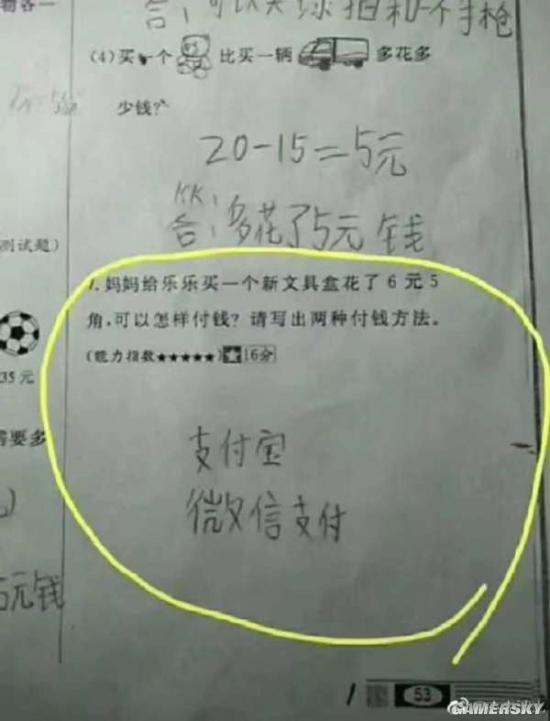 物各一
答:可以买球拍和一个手枪
(4)买一个 比买一辆 多花多
少钱?
20-15=5元
答:多花了5元钱
测试题)
7.妈妈给乐乐买一个新文具盒花了6元5
角,可以怎样付钱?请写出两种付钱方法。
(能力指数★★★★★)★16分
35元
需要多
支付宝
微信支付
5元钱
53
GAMERSKY